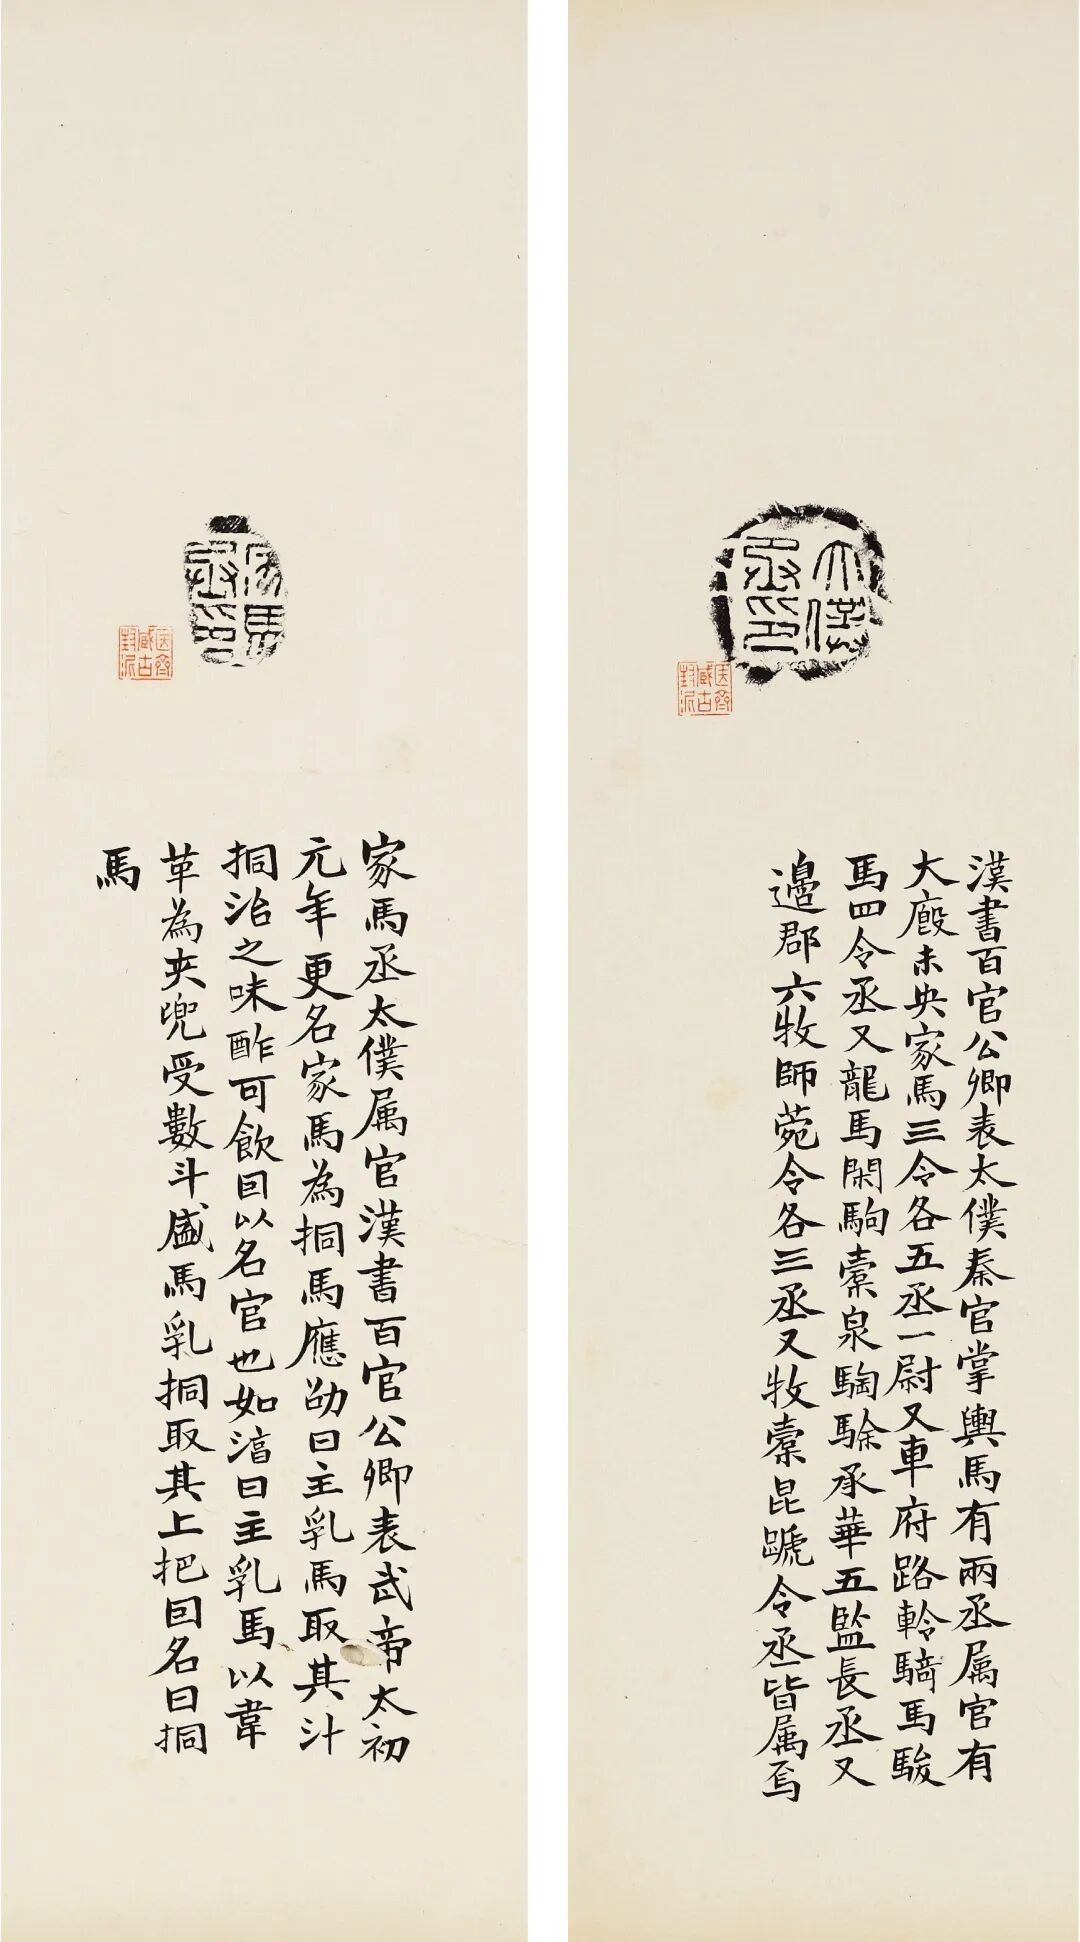 大僕
丞印
医齊
臧古
封泥
漢書百官公卿表太僕秦官掌輿馬有兩丞属官有
大廄未央家馬三令各五丞一尉又車府路軨騎馬駿
馬四令丞又龍馬閑駒槖泉騊駼承華五監長丞又
邊郡六牧師菀令各三丞又牧槖昆蹏令丞皆属焉
家馬
丞印
医齊
臧古
封泥
家馬丞太僕属官漢書百官公卿表武帝太初
元年更名家馬為挏馬應劭曰主乳馬取其汁
挏治之味酢可飲因以名官也如淳曰主乳馬以韋
革為夾兜受數斗盛馬乳挏取其上把因名曰挏
馬